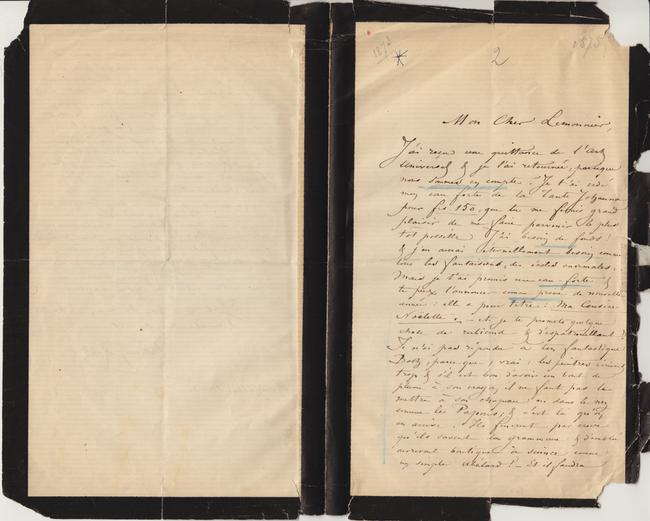 1873
1875
2
Mon Cher Lemonnier,
J'ai reçu une quittance de l'Art
Universel & je l'ai retournée, parceque
nous sommes en compte. Je t'ai cédé
mon eau forte de la Tante Johanna
pour frs 150, que tu me ferais grand
plaisir de me faire parvenir le plus
tot possible. J'ai besoin de fonds!
& j'en aurai éternellement besoin, comme
tous les fantaisistes, des
Mais je t'ai promis une eau forte &
tu peux l'annoncer comme prime de nouvelle
année: elle a pour titre: Ma Cousine
Noëlette. – et je te promets quelque
chose de rubicond & d'espatrouillant!
Je n'ai pas répondu à ton fantastique
parceque, vrai! les peintres écrivent
trop & s'il est bon d'avoir un bout de
plume à son crayon, il ne faut pas la
mettre à son chapeau ni dans le nez
comme les Papous; & c'est là qu'on
en arrive. Ils finiront par croire
qu'ils savent la grammaire &
ouvriront boutique de science comme
un simple Abélard! – Et il faudra